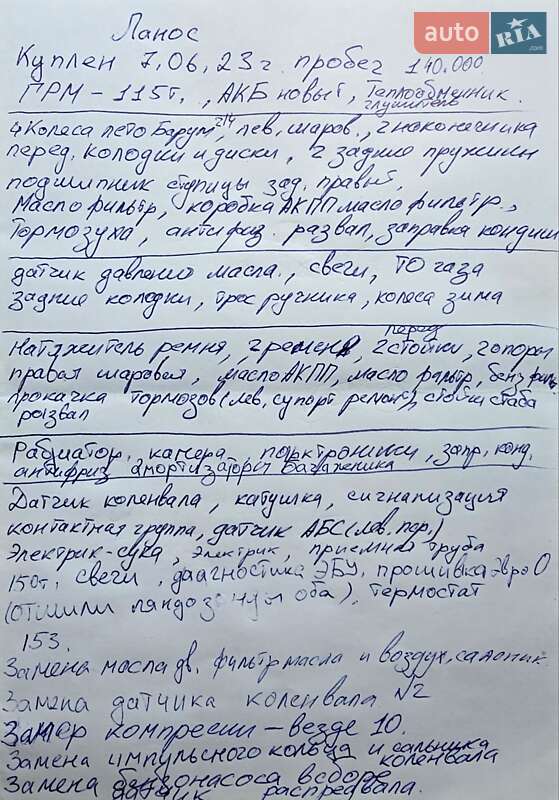 auto RIA .com
Ланос
Куплен 7,06,23г. пробег 140.000.
ГРМ - 115т., АКБ новый, Теплообменник.
глушитель
4 Колеса лето Барум r14, лев. шаров., 2 наконечника
перед. колодки и диски, 2 задние пружины
подшипник ступицы зад. правый,
Масло фильтр, коробка АКПП масло фильтр.,
Тормозуха, антифиз. развал, заправка кондиц
датчик давления масла., свечи, ТО газа
задние колодки, трос ручника, колеса зима
перед
Натяжитель ремня, 2 ремень, 2 стойки, 2 опоры
правая шаровая, масло АКПП, масло фильтр, бенз филь.
прокачка тормозов (лев. супорт ремонт), стойки стаба
развал
Радиатор, камера, парктроники, запр. конд.
антифриз амортизаторы багажника
Датчик коленвала, катушка, сигнализация
контактная группа, датчик АБС (лев. пер.)
Электрик-сука, электрик, приемная труба
150т. свечи, диагностика ЭБУ, прошивка Эвро 0
(отшили лямдозонды оба), термостат
153.
Замена масла дв. фильтр масла и воздух, салонник
Замена датчика коленвала №2
Замер компресии - везде 10.
Замена импульсного кольца и сальника
коленвала
Замена бензонасоса в сборе
датчик распредвала.